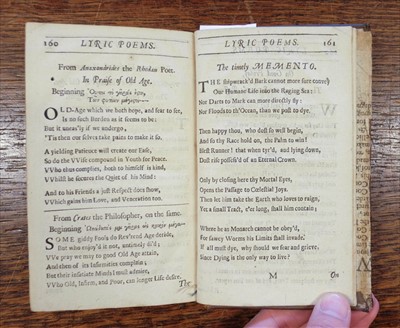 160
LYRIC POEMS.
From Anaxandrides the Rhodian Poet.
In Praise of Old Age.
Beginning
OLD-Age which we both hope, and fear to see,
Is no such Burden as it seems to be:
But it uneas'ly if we undergo,
'Tis then our selves take pains to make it so.
A yielding Patience will create our Ease,
So do the VVise compound in Youth for Peace.
VVho thus comforts, both to himself is kind,
VVhilst he secures the Quiet of his Mind:
And to his Friends a just Respect does show,
VVhich gains him Love, and Veneration too.
From Crates the Philosopher, on the same.
Beginning
SOME giddy Fools do Rev'rend Age deride,
But who enjoy'd it not, untimely di'd;
VVe pray we may to good Old Age attain,
And then of its Infirmities complain;
But their insatiate Minds I most admire,
VVho Old, Infirm, and Poor, can longer Life desire.
The
LYRIC POEMS.
161
The timely MEMENTO.
THE Shipwrack'd Bark cannot more sure convey
Our Humane Life into the Raging Sea:
Nor Darts to Mark can more directly fly:
Nor Floods to th'Ocean, than we post to dye.
Then happy thou, who dost so well begin,
And so thy Race hold on, the Palm to win!
Blest Runner! that when tyr'd, and lying down,
Dost rise possess'd of an Eternal Crown.
Only by closing here thy Mortal Eyes,
Opens the Passage to Cœlestial Joys.
Then let him take the Earth who loves to reign,
Yet a small Tract, e'er long, shall him contain;
Where he as Monarch cannot be obey'd,
For sawcy Worms his Limits shall invade.
If all must dye, why should we fear and grieve.
Since Dying is the only way to live?
M
On